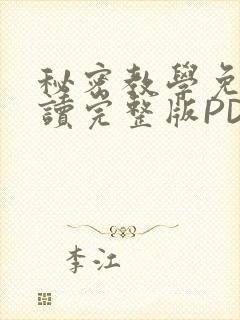 秘密教學免
讀完整版PD
李江